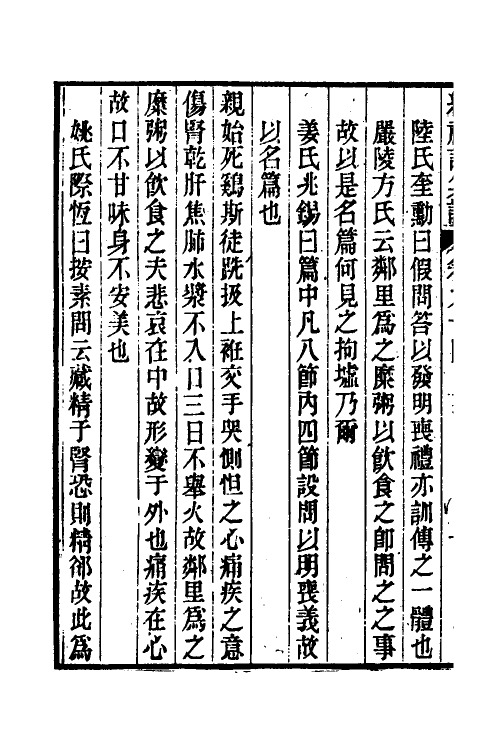 陸氏奎勳曰假問答以發明喪禮亦訓傳之一體也
嚴陵方氏云鄰里爲之糜粥以飲食之卽問之之事
故以是名篇何見之拘墟乃爾
姜氏兆錫曰篇中凡八節內四節設問以明喪義故
以名篇也
親始死雞斯徒跣扱上衽交手哭惻怛之心痛疾之意
傷腎乾肝焦肺水漿不入口三日不舉火故鄰里爲之
糜粥以飲食之夫悲哀在中故形變于外也痛疾在心
故口不甘味身不安美也
姚氏際恆曰按素問云藏精于腎恐則精郤故此爲